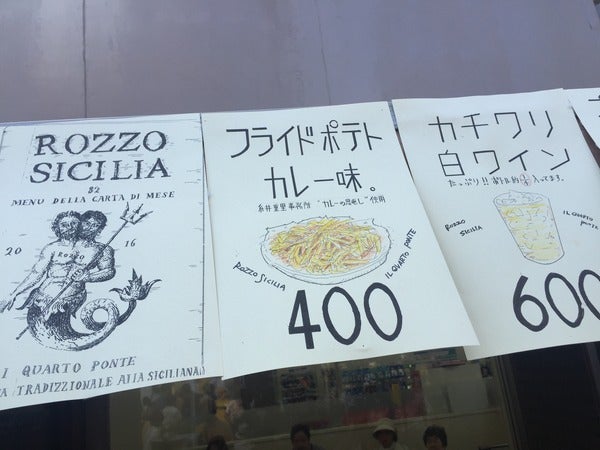 ROZZO
SICILIA
82
MENU DELLA CARTA DI MESE
2016
ROZZO
I QUARTO PONTE
A TRADIZZIONALE ALLA SICILIANA
フライドポテト
カレー味。
糸井重里事務所 "カレーの恩返し" 使用
ROZZO SICILIA
IL QUARTO PONTE
400
カチワリ
白ワイン
たっぷり!! ボトル約
入ってます。
ROZZO
SICILIA
IL QUARTO
PONTE
600